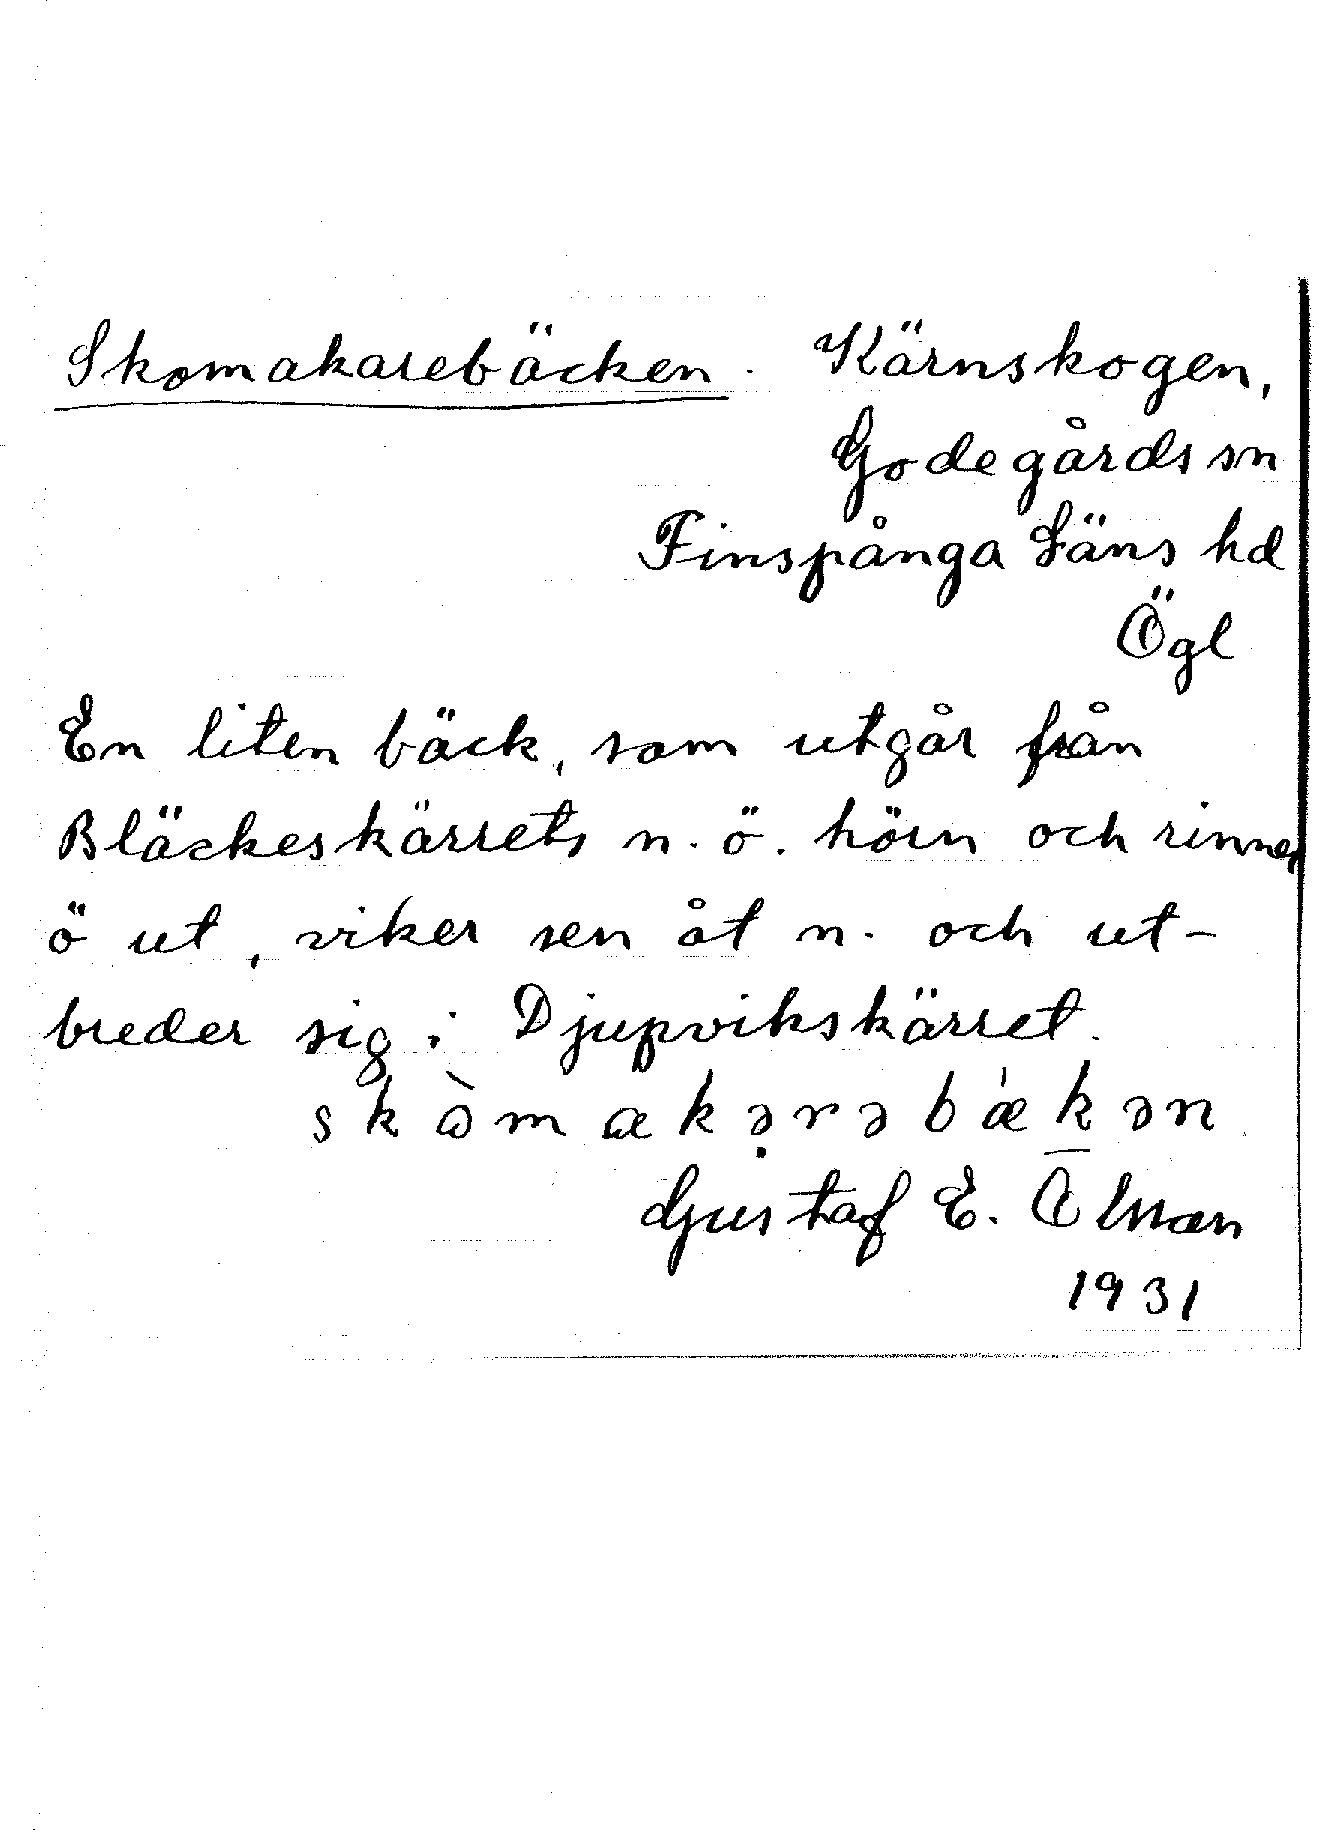 Skomakarebäcken. Kärnskogen,
Godegårds sn
Finspånga Läns hd
Ögl
En liten bäck, som utgår från
Bläckeskärrets n.ö. hörn och rinner
ö ut, viker sen åt n. och ut-
breder sig i Djupvikskärret.
Gustaf E. Ölman
1931